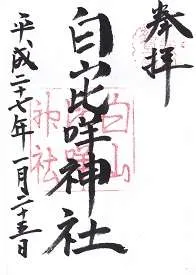 奉拝
白山比咩神社
平成二十七年一月二十五日
白山
比咩
神社